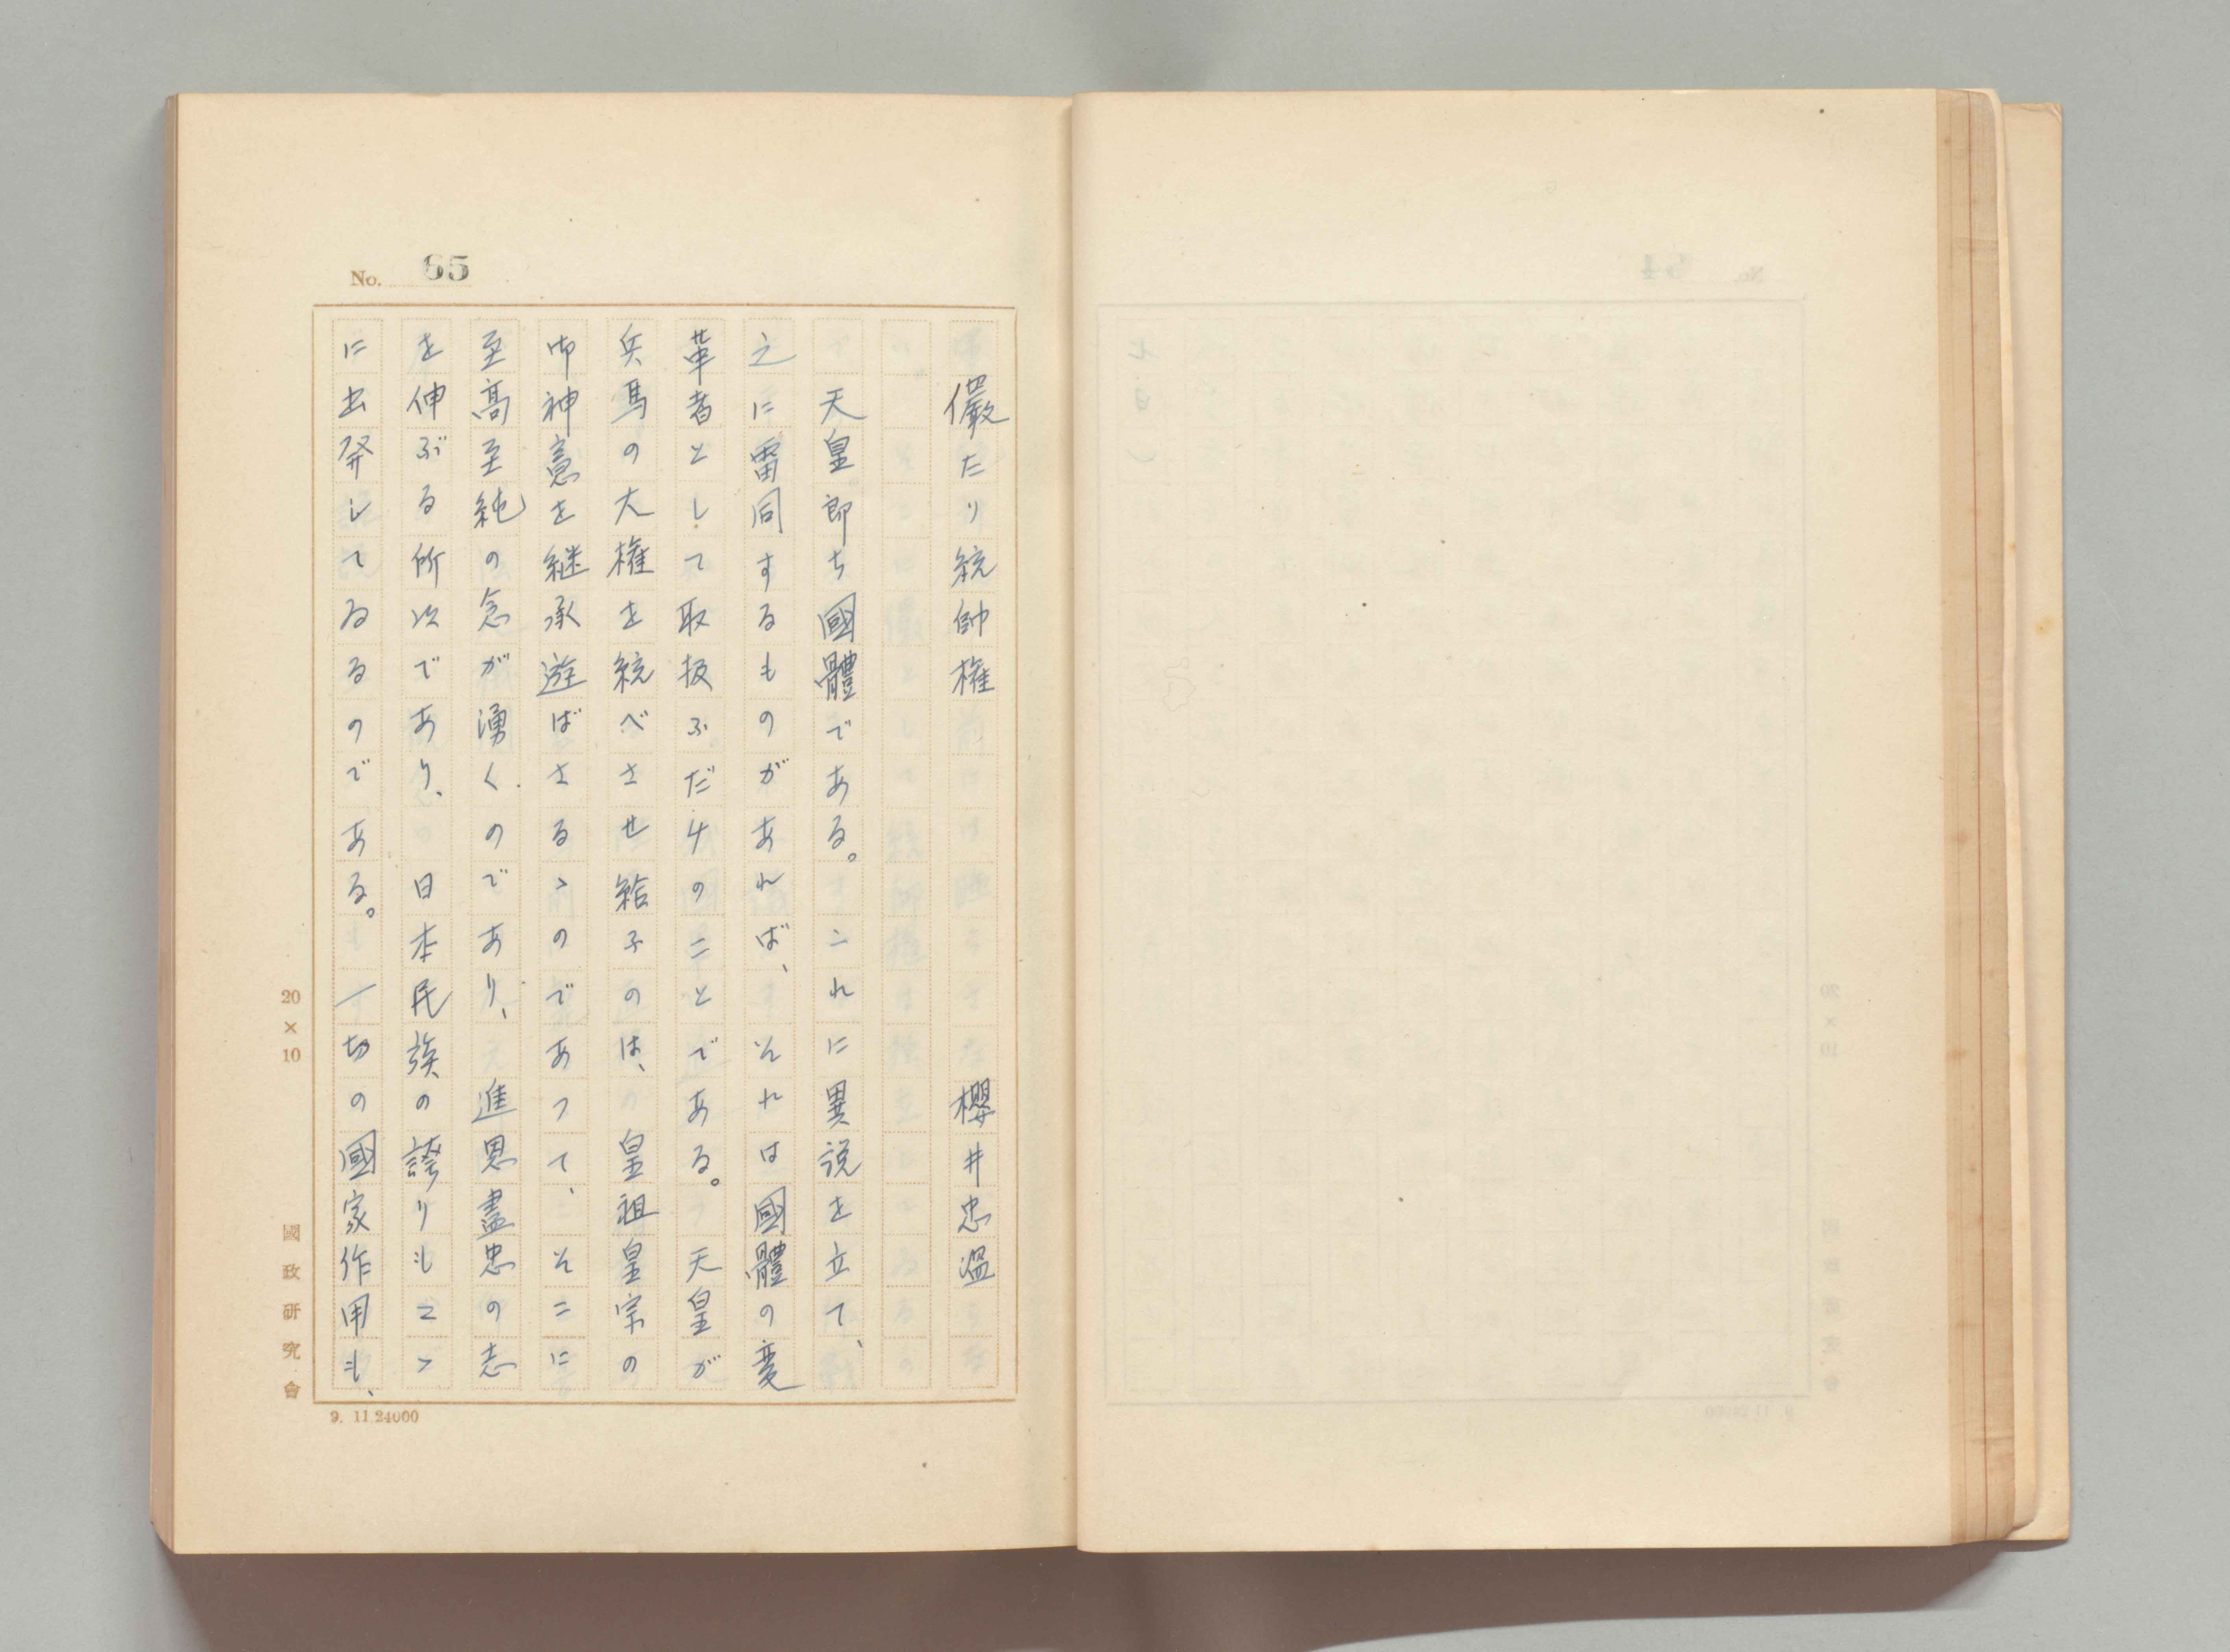 No. 65
儼たり統帥権　櫻井忠温
天皇即ち國體である。これに異説を立て、
之に雷同するものがあれば、それは國體の変
革者として取扱ふだけのことである。天皇が
兵馬の大権を統べさせ給ふのは、皇祖皇宗の
御神意を継承遊ばさるゝのであつて、そこに
至高至純の念が湧くのであり、進思盡忠の志
を伸ぶる所以であり、日本民族の誇りもこゝ
に出発してゐるのである。一切の國家作用も、
20×10
國政研究會
9. 11.24000